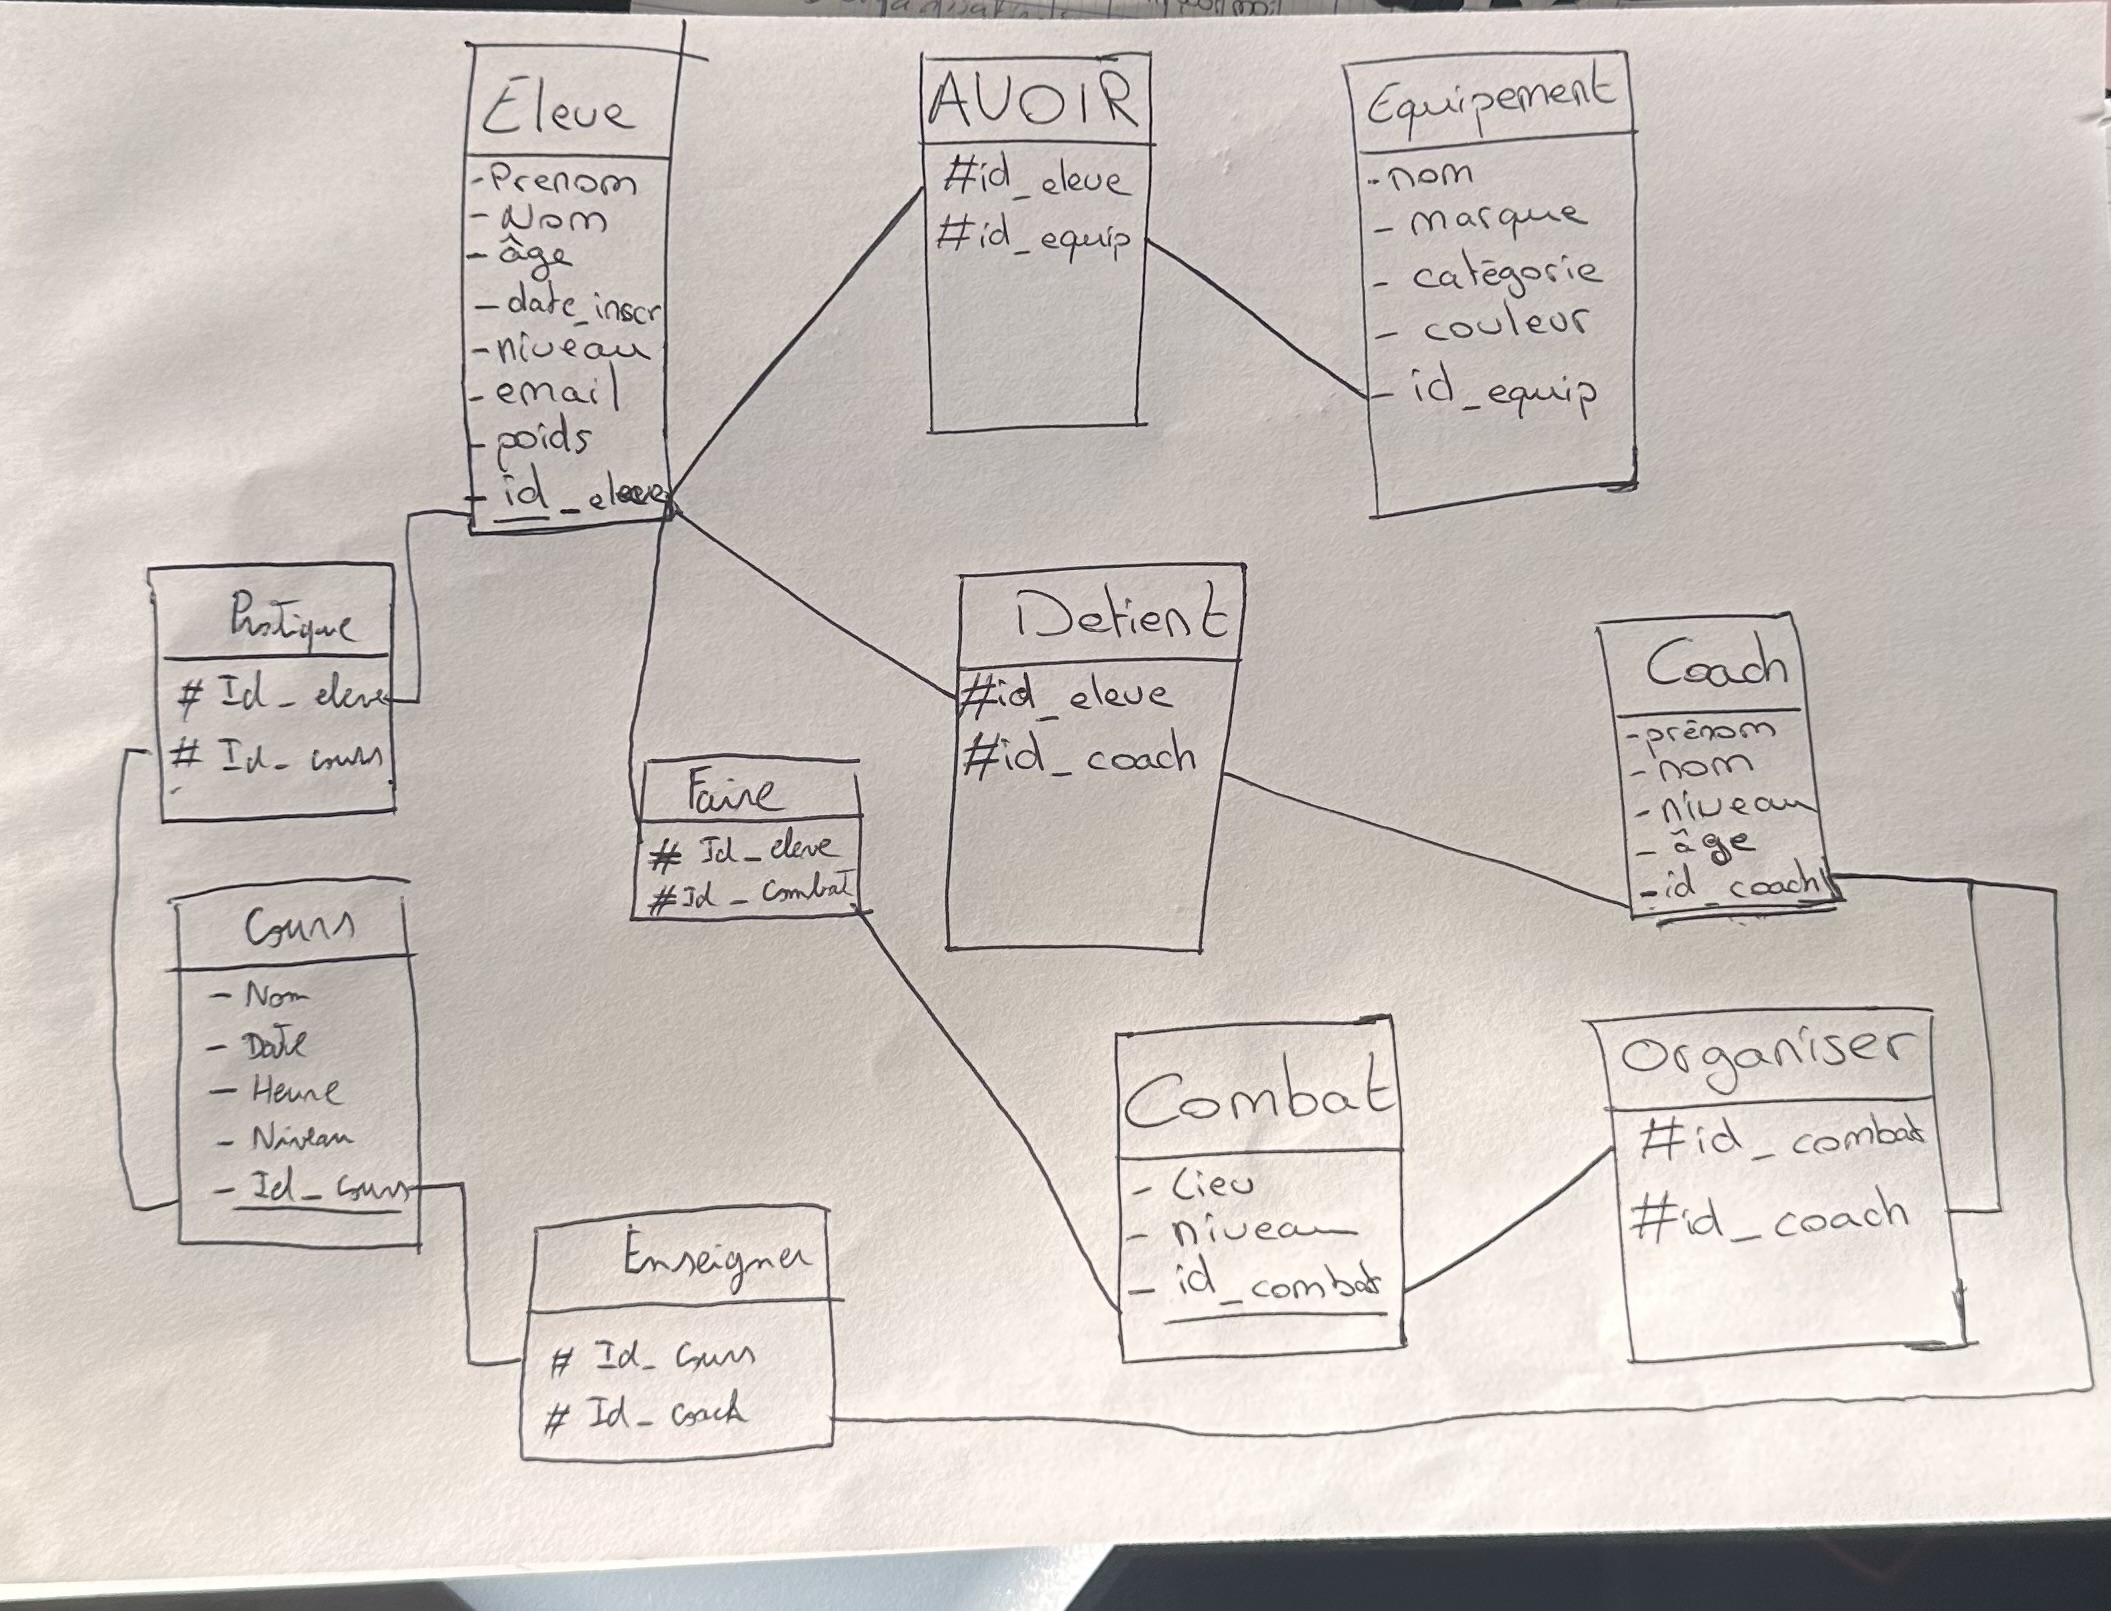 Eleve
-Prenom
- Nom
- âge
- date_inscr
- niveau
- email
- poids
- id_eleve
AVOIR
#id_eleve
#id_equip
Equipement
- nom
- marque
- catégorie
- couleur
- id_equip
Pratique
# Id_eleve
# Id_cours
Detient
#id_eleve
#id_coach
Coach
- prénom
- nom
- niveau
- âge
- id_coach
Faire
# Id_eleve
# Id_Combat
Cours
- Nom
- Date
- Heure
- Niveau
- Id_Cours
Combat
- Lieu
- niveau
- id_combat
Organiser
#id_combat
#id_coach
Enseigner
# Id_Cours
# Id_coach